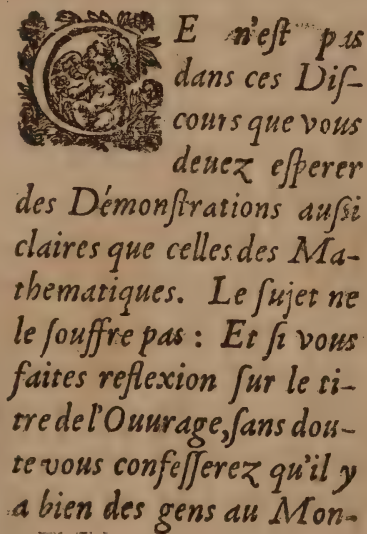 CE n'eſt pas
dans ces Diſ-
cours que vous
deuez eſperer
des Démonſtrations auſſi
claires que celles des Ma-
thematiques. Le ſujet ne
le ſouffre pas : Et ſi vous
faites reflexion ſur le ti-
tre de l'Ouurage, ſans dou-
te vous confeſſerez qu'il y
a bien des gens au Mon-